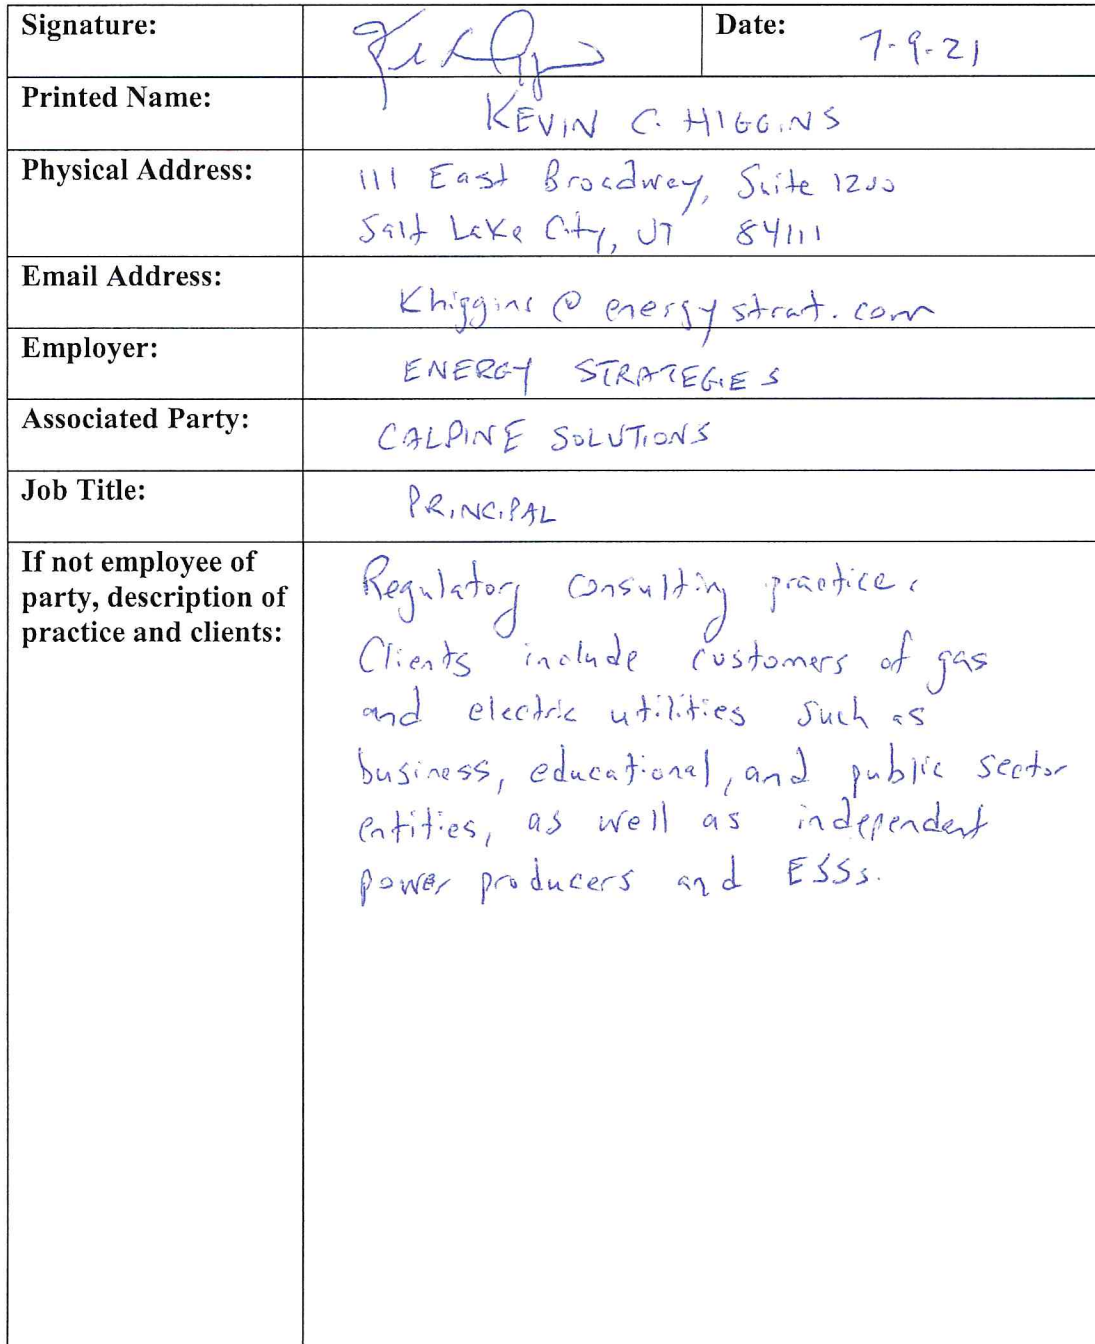 Signature:
Date: 7-9-21
Printed Name: KEVIN C. HIGGINS
Physical Address: 111 East Broadway, Suite 1200
Salt Lake City, UT 84111
Email Address: Khiggins@energystrat.com
Employer: ENERGY STRATEGIES
Associated Party: CALPINE SOLUTIONS
Job Title: PRINCIPAL
If not employee of
party, description of
practice and clients:
Regulatory consulting practice.
Clients include customers of gas
and electric utilities such as
business, educational, and public sector
entities, as well as independent
power producers and ESSs.